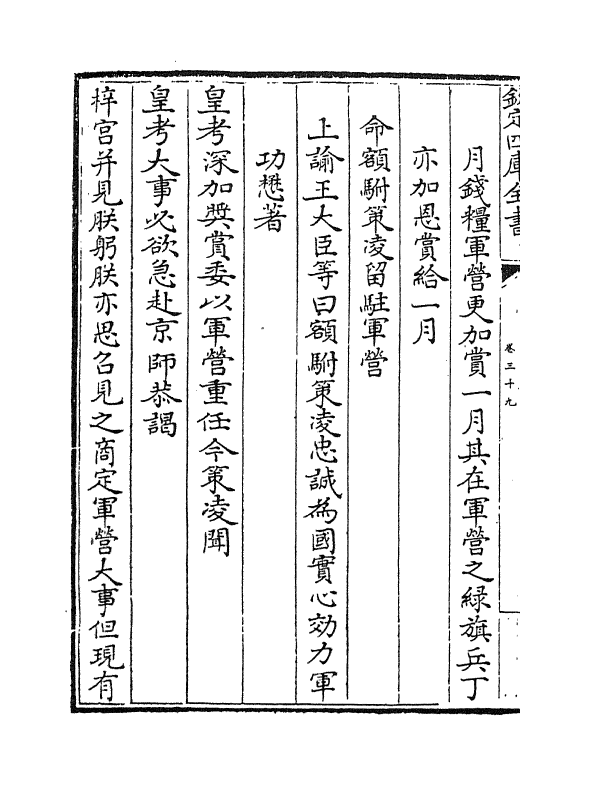 欽定四庫全書
卷三十九
月錢糧軍營更加賞一月其在軍營之緑旗兵丁
亦加恩賞給一月
命額駙策凌留駐軍營
上諭王大臣等曰額駙策凌忠誠為國實心効力軍
功懋著
皇考深加奬賞委以軍營重任今策凌聞
皇考大事必欲急赴京師恭謁
梓宫并見朕躬朕亦思召見之商定軍營大事但現有